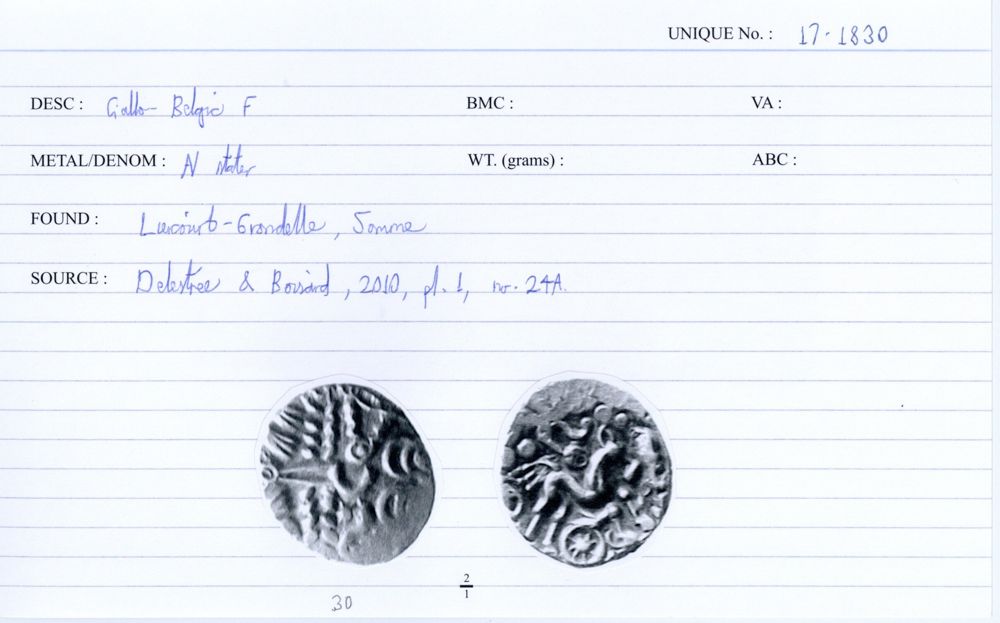 UNIQUE No. : 17·1830
DESC : Gallo-Belgic F BMC : VA :
METAL/DENOM : N stater WT. (grams) : ABC :
FOUND : Liercourt-Erondelle, Somme
SOURCE : Delestrée & Boisard, 2010, pl. 1, no. 24A.
2
1
30